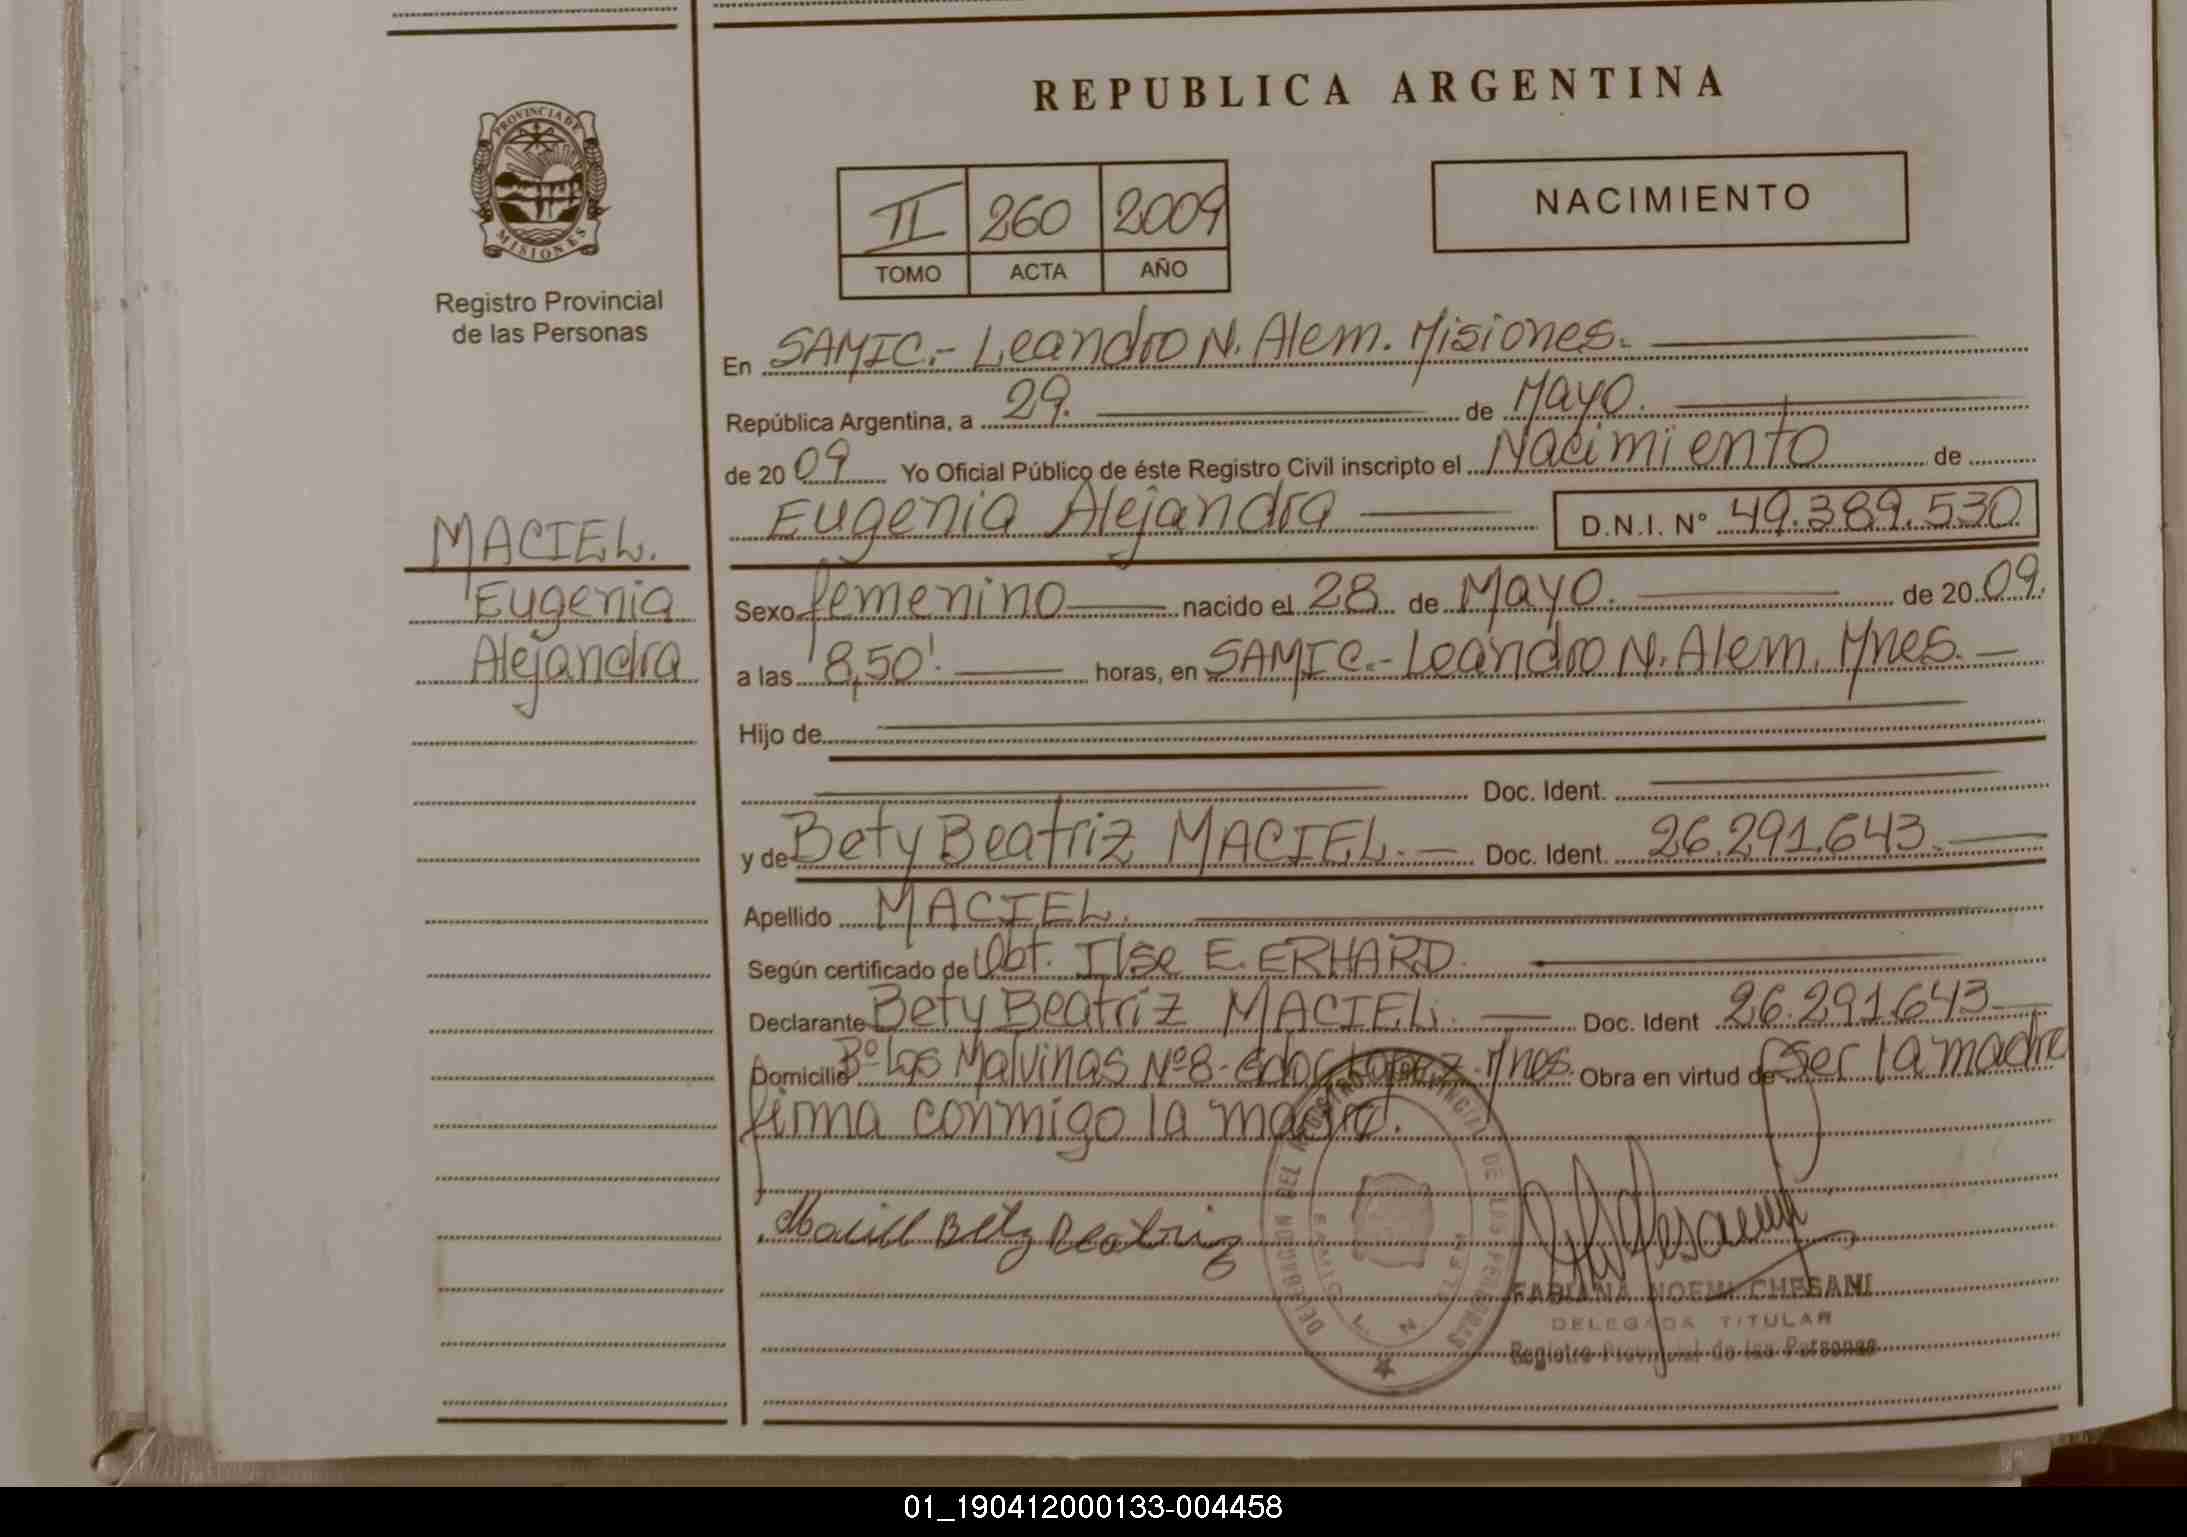 REPUBLICA ARGENTINA
PROVINCIA DE
MISIONES
Registro Provincial
de las Personas
II 260 2009
TOMO ACTA AÑO
NACIMIENTO
En SAMIC.- Leandro N. Alem. Misiones.
República Argentina, a 29. de Mayo.
de 20 09 Yo Oficial Público de éste Registro Civil inscripto el Nacimiento de
Eugenia Alejandra D.N.I. N° 49.389.530
MACIEL.
Eugenia
Alejandra
Sexo femenino nacido el 28 de Mayo. de 20 09.
a las 8,50'. horas, en SAMIC.- Leandro N. Alem. Mnes.
Hijo de
Doc. Ident.
y de Bety Beatriz MACIEL. Doc. Ident. 26.291.643.
Apellido MACIEL.
Según certificado de Obt. Ilse E. ERHARD.
Declarante Bety Beatriz MACIEL. Doc. Ident 26.291.643
Domicilio Bº Las Malvinas Nº 8- Gdor Lopez. Mnes. Obra en virtud de ser la madre
firma conmigo la madre.
Maciel Bety Beatriz
DELEGACION DEL REGISTRO PROVINCIAL DE LAS PERSONAS
SAMIC L. N. ALEM
FABIANA NOEMI CHESANI
DELEGADA TITULAR
Registro Provincial de las Personas
01_190412000133-004458